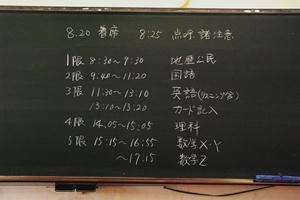 8:20 着席 8:25 点呼 諸注意
1限 8:30~9:30 地歴公民
2限 9:40~11:20 国語
3限 11:30~13:10 英語(リスニング含)
13:10~13:20 カード記入
4限 14:05~15:05 理科
5限 15:15~16:55 数学X・Y
~17:15 数学Z